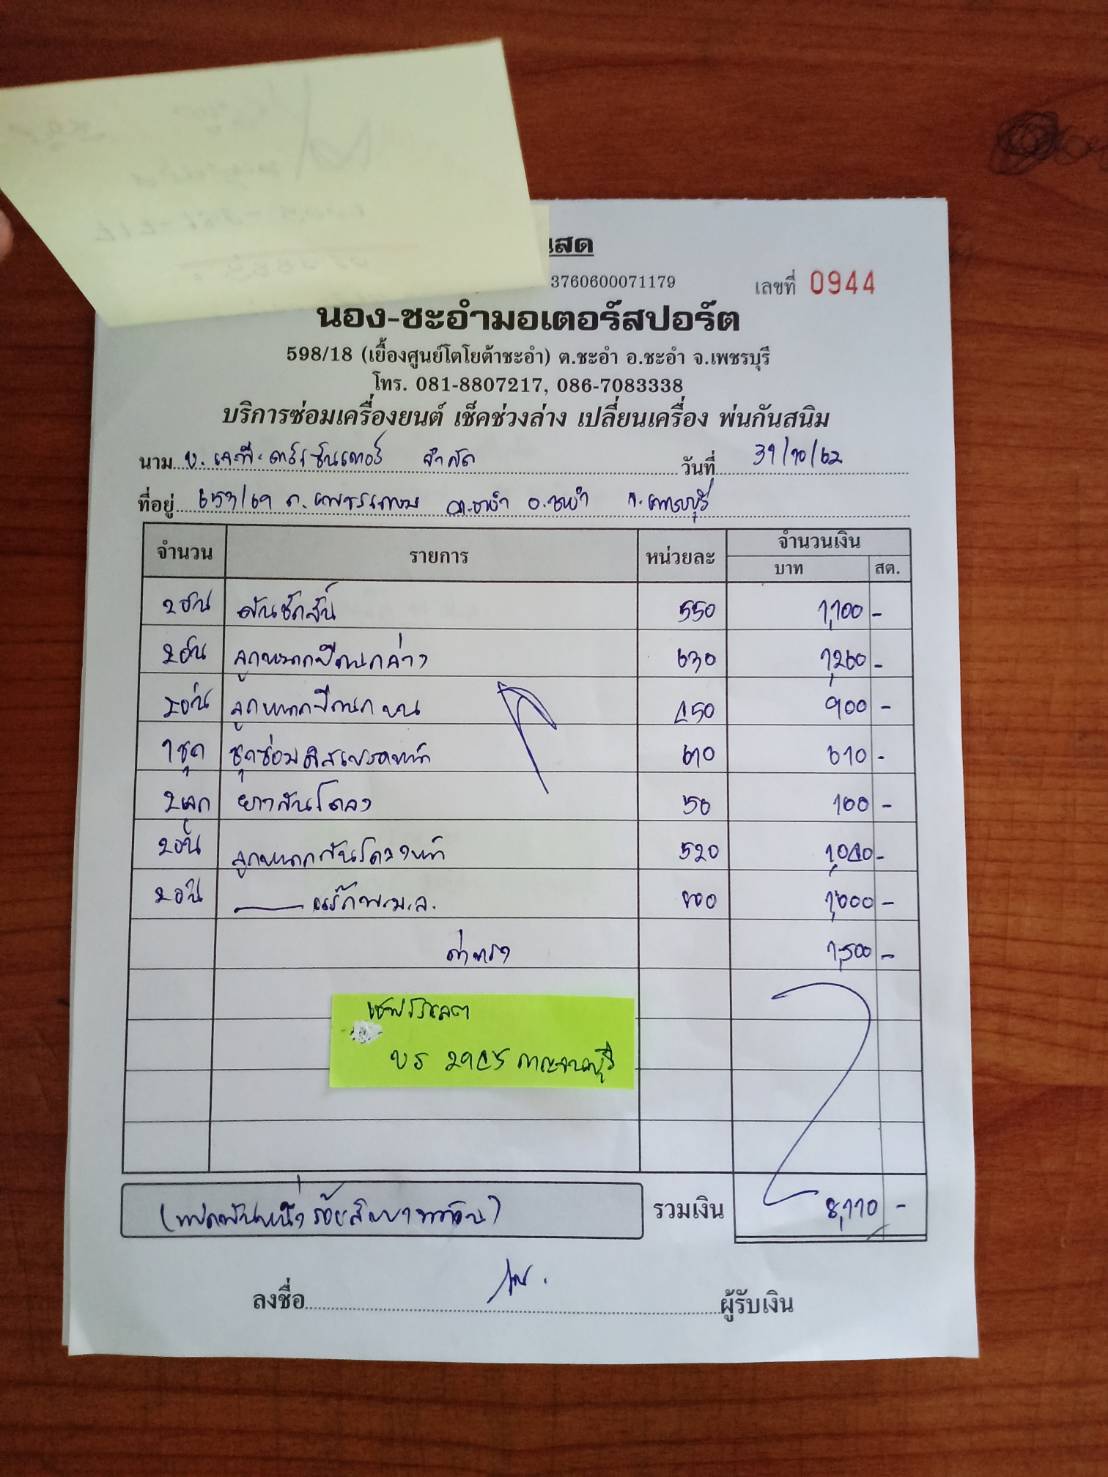 นสด
3760600071179
เลขที่ 0944
นอง-ชะอำมอเตอร์สปอร์ต
598/18 (เยื้องศูนย์โตโยต้าชะอำ) ต.ชะอำ อ.ชะอำ จ.เพชรบุรี
โทร. 081-8807217, 086-7083338
บริการซ่อมเครื่องยนต์ เช็คช่วงล่าง เปลี่ยนเครื่อง พ่นกันสนิม
นาม บ. จำกัด วันที่ 31/10/62
ที่อยู่ 653/69 ถ.เพชรเกษม ต.ชะอำ อ.ชะอำ จ.เพชรบุรี
จำนวน รายการ หน่วยละ จำนวนเงิน
บาท สต.
2อัน คันชักสั้น 550 1,100 -
2อัน ลูกหมากปีกนกล่าง 630 1,260 -
2อัน ลูกหมากปีกนกบน 450 900 -
1ชุด ชุดซ่อมดิสเบรคหน้า 610 610 -
2ลูก ยางกันโคลง 50 100 -
2อัน ลูกหมากกันโคลงหน้า 520 1,040 -
2อัน แร็คพ.ม.ล. 800 1,600 -
ค่าแรง 1,500 -
เชฟโรเลต
บร 2145 กาญจนบุรี
(แปดพันหนึ่งร้อยสิบบาทถ้วน) รวมเงิน 8,110 -
ลงชื่อ ผู้รับเงิน